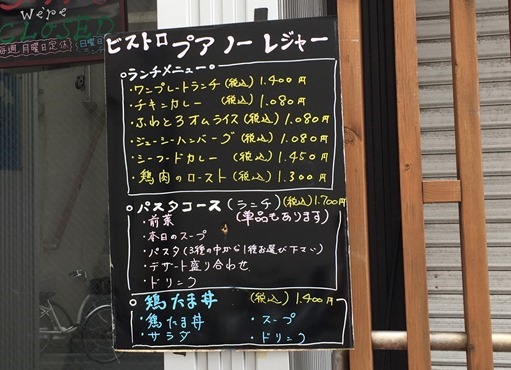 We're
CLOSED
毎週月曜日定休
ビストロ プアノーレジャー
ランチメニュー
・ワンプレートランチ(税込) 1.400円
・チキンカレー (税込) 1.080円
・ふわとろオムライス(税込) 1.080円
・ジューシーハンバーグ(税込) 1.080円
・シーフードカレー (税込) 1.450円
・鶏肉のロースト(税込) 1.300円
パスタコース(ランチ)(税込)1.700円
・前菜 (単品もあります)
・本日のスープ
・パスタ(3種の中から1種お選び下さい)
・デザート盛り合わせ
・ドリンク
鶏たま丼 (税込) 1.400円
・鶏たま丼 ・スープ
・サラダ ・ドリンク